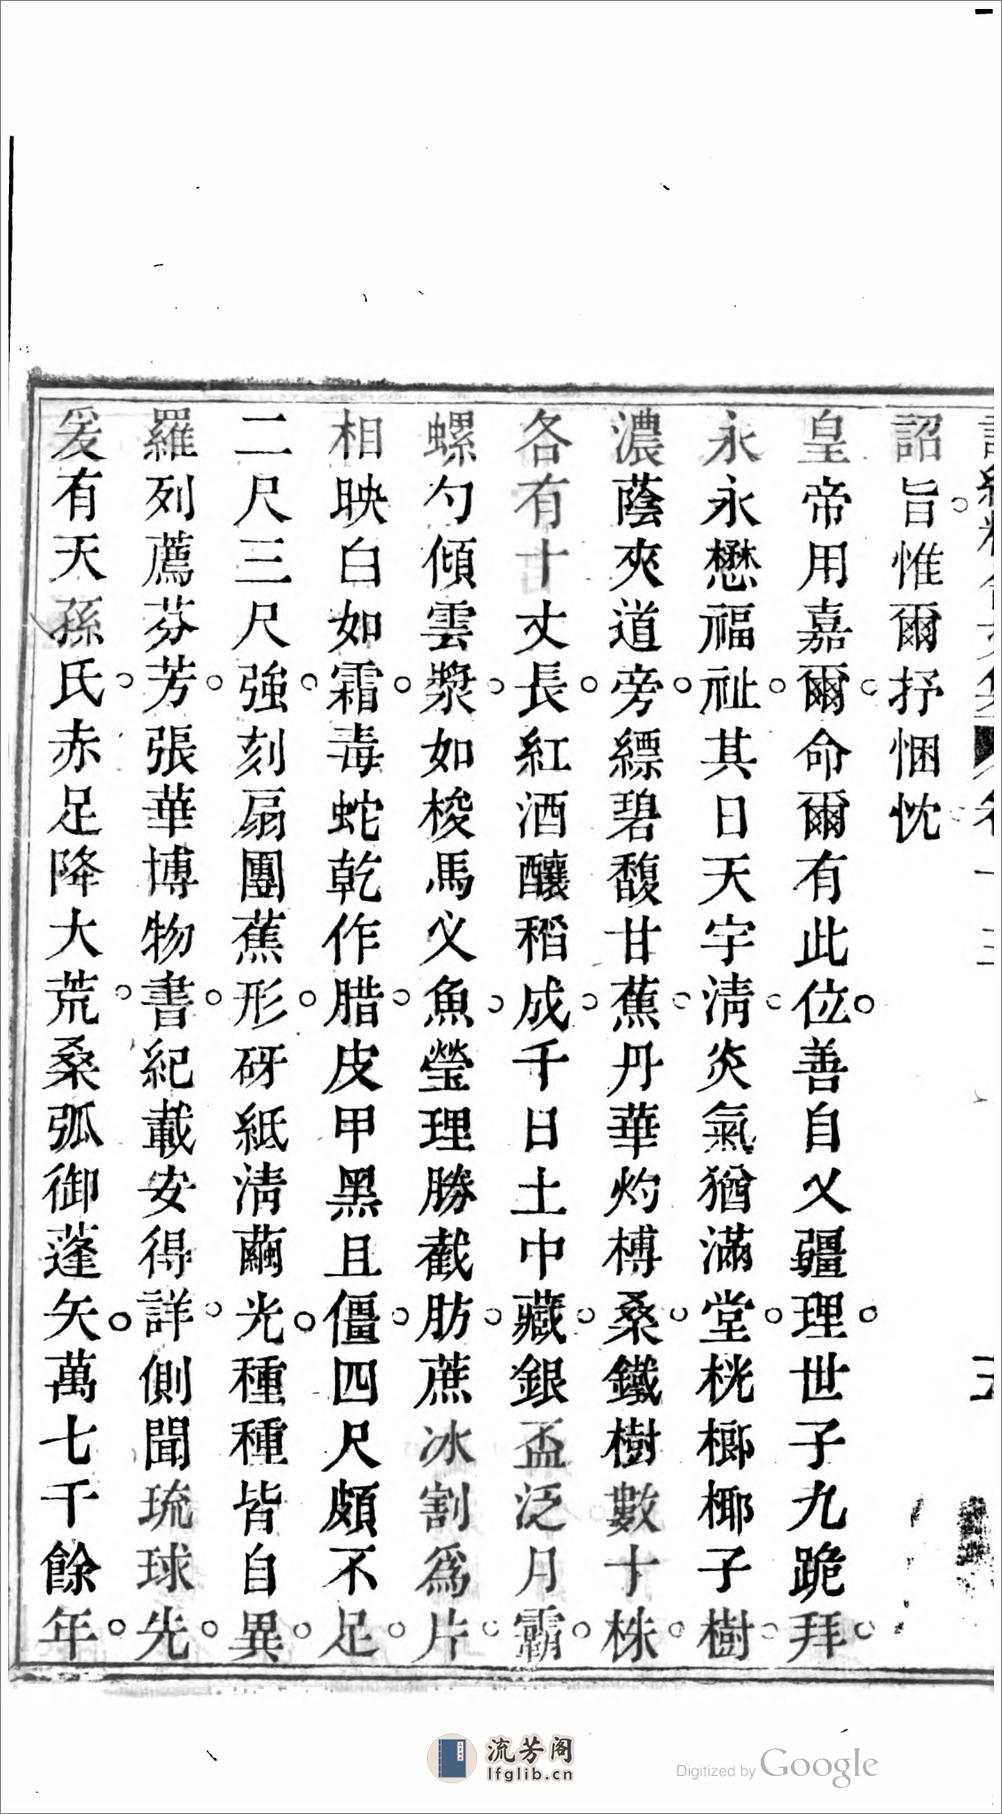 詔旨惟爾抒悃忱
皇帝用嘉爾命爾有此位善自乂疆理世子九跪拜
永永懋福祉其日天宇淸炎氣猶滿堂桄榔椰子樹
濃蔭夾道旁縹碧馥甘蕉丹華灼榑桑鐵樹數十株
各有十丈長紅酒釀稻成千日土中藏銀盃泛月霸
螺勺傾雲漿如梭馬乂魚瑩理勝截肪蔗冰割爲片
相映白如霜毒蛇乾作腊皮甲黑且僵四尺頗不足
二尺三尺強刻扇團蕉形砑紙淸繭光種種皆自異
羅列薦芬芳張華博物書紀載安得詳側聞琉球先
爰有天孫氏赤足降大荒桑弧御蓬矢萬七千餘年
流芳阁
lfglib.cn
Digitized by Google